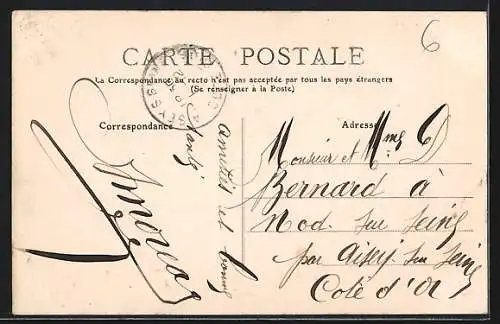 6
CARTE POSTALE
La Correspondance au recto n'est pas acceptée par tous les pays étrangers
(Se renseigner à la Poste)
Correspondance
Amitiés et bonne
santé
Adresse
Monsieur et Mme D
Bernard à
Nod sur Seine
par Aisey sur Seine
Cote d'Or